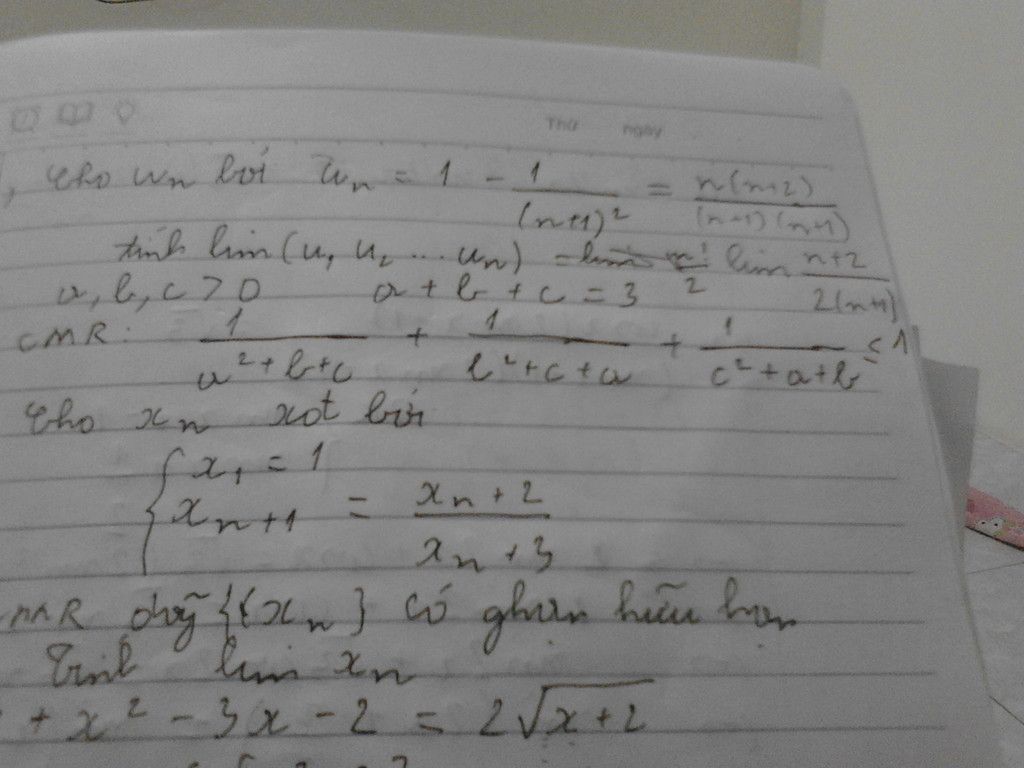 Thứ ngày
, Cho un bởi un = 1 - 1/(n+1)² = n(n+2)/(n+1)(n+1)
tính lim(u₁ u₂ ... un) = lim n+2/2(n+1)
a, b, c > 0 a + b + c = 3
CMR: 1/a²+b+c + 1/b²+c+a + 1/c²+a+b ≤ 1
Cho xn xđt bởi
{ x₁ = 1
xn+1 = xn+2/xn+3
CMR dãy {xn} có ghạn hữu hạn
Tính lim xn
+ x² - 3x - 2 = 2√x+2